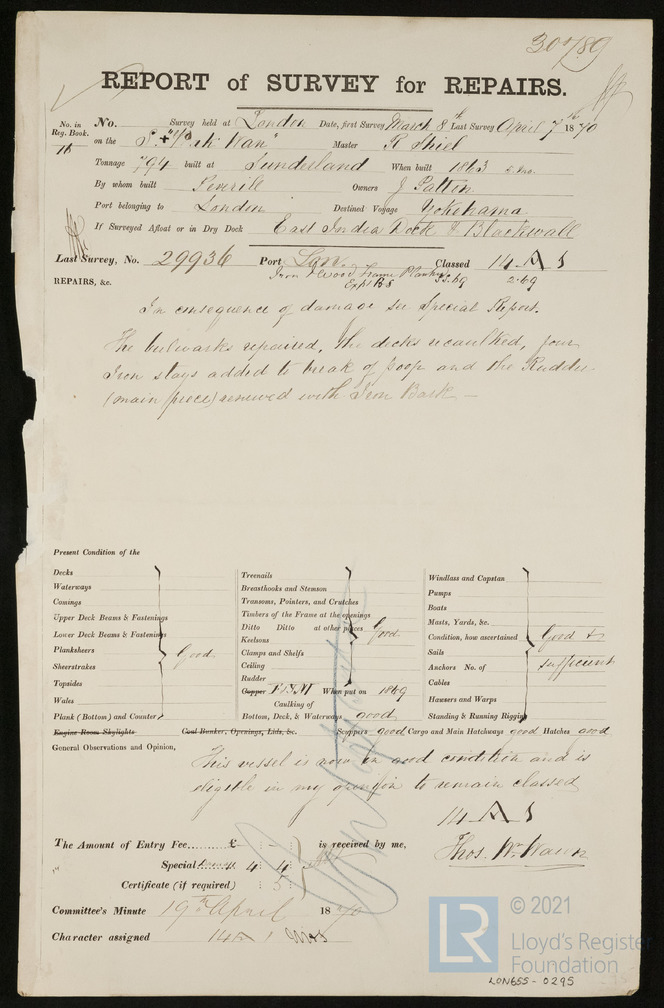 30789
REPORT of SURVEY for REPAIRS.
No. in Reg. Book. No. Survey held at London Date, first Survey March 8th Last Survey April 7th 1870
on the Master R Shiel
Tonnage 794 built at Sunderland When built 1863 5 mo.
By whom built Peverile Owners J Patton
Port belonging to London Destined Voyage Yokohama
If Surveyed Afloat or in Dry Dock East India Dock & Blackwall
Last Survey, No. 29936 Port Lon. Classed 14 A 1
Iron & Wood Frame Planked
REPAIRS, &c.
In consequence of damage see Special Report.
The bulwarks repaired, The decks recaulked, four
Iron stays added to break of poop and the Rudder
(main piece) renewed with Iron Bark —
Present Condition of the
Decks
Waterways
Comings
Upper Deck Beams & Fastenings
Lower Deck Beams & Fastenings
Planksheers
Sheerstrakes
Topsides
Wales
Plank (Bottom) and Counter
Good
Engine Room Skylights
Treenails
Breasthooks and Stemson
Transoms, Pointers, and Crutches
Timbers of the Frame at the openings
Ditto Ditto at other places
Keelsons
Clamps and Shelfs
Ceiling
Rudder
Good
Copper When put on 1869
Caulking of
Bottom, Deck, & Waterways good
Coal Bunker, Openings, Lids, &c.
Windlass and Capstan
Pumps
Boats
Masts, Yards, &c.
Condition, how ascertained
Sails
Anchors No. of
Cables
Hawsers and Warps
Standing & Running Rigging
Good &
sufficient
Scuppers good Cargo and Main Hatchways good Hatches good
General Observations and Opinion,
This vessel is now in good condition and is
eligible in my opinion to remain classed
14 A 1
Thos. Wm. Wawn
The Amount of Entry Fee...... £ - : - : is received by me,
Special 4 : 4 :
Certificate (if required) : 5 :
Committee's Minute 19th April 1870
Character assigned 14 A 1
© 2021
LR
Lloyd's Register
Foundation
LON655-0295